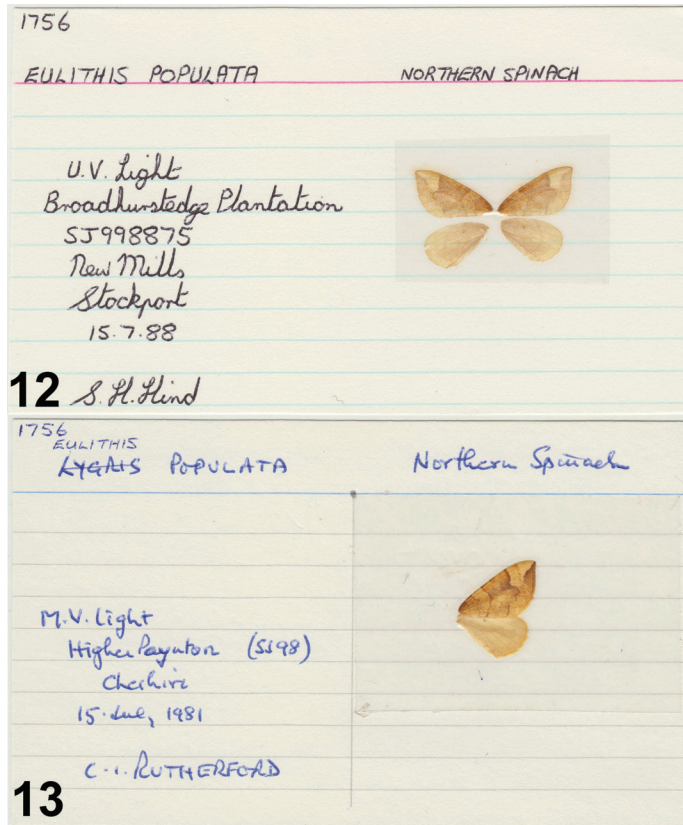 1756
EULITHIS POPULATA NORTHERN SPINACH
U.V. Light
Broadhurstedge Plantation
SJ998875
New Mills
Stockport
15.7.88
12 S. H. Hind
1756
EULITHIS
LYGRIS POPULATA Northern Spinach
M.V. Light
Higher Poynton (SJ98)
Cheshire
15. July, 1981
C. I. RUTHERFORD
13